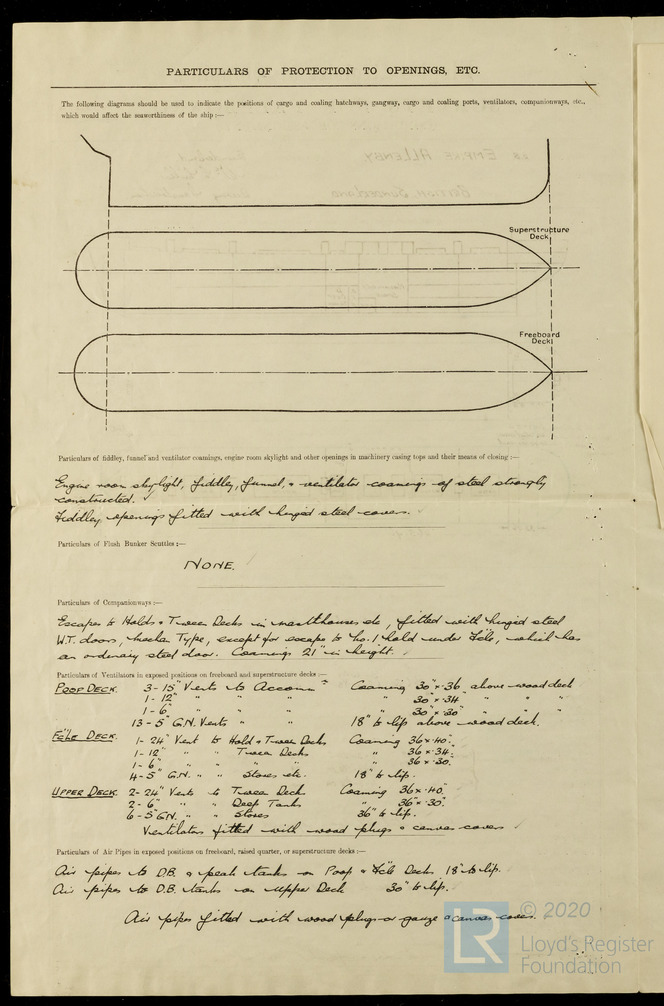 PARTICULARS OF PROTECTION TO OPENINGS, ETC.
The following diagrams should be used to indicate the positions of cargo and coaling hatchways, gangway, cargo and coaling ports, ventilators, companionways, etc.,
which would affect the seaworthiness of the ship:—
Superstructure
Deck
Freeboard
Deck
Particulars of fiddley, funnel and ventilator coamings, engine room skylight and other openings in machinery casing tops and their means of closing:—
Engine room skylight, fiddley, funnel, & ventilator coamings of steel strongly
constructed.
Fiddley openings fitted with hinged steel covers.
Particulars of Flush Bunker Scuttles:—
NONE.
Particulars of Companionways:—
Escapes to Holds & Tween Decks in masthouses etc, fitted with hinged steel
W.T. doors, Type, except for escape to No.1 hold under Fcle, which has
an ordinary steel door. Coamings 21" in height.
Particulars of Ventilators in exposed positions on freeboard and superstructure decks:—
POOP DECK. 3-15" Vents to Accomn Coaming 30" x .36 above wood deck
1-12" " " " " 30" x .34 " " "
1-6" " " " " 30" x .30" " " "
13-5" G.N. Vents " " 18" to lip above wood deck.
FCLE DECK. 1-24" Vent to Hold & Tween Decks Coaming 36" x .40".
1-12" " " Tween Decks " 36" x .34".
1-6" " " " " 36" x .30".
4-5" G.N. " " Stores etc. 18" to lip.
UPPER DECK. 2-24" Vents to Tween Decks Coaming 36" x .40".
2-6" " " Deep Tanks " 36" x .30".
6-5" G.N. " " Stores 36" to lip.
Ventilators fitted with wood plugs & canvas covers
Particulars of Air Pipes in exposed positions on freeboard, raised quarter, or superstructure decks:—
Air pipes to D.B. & peak tanks on Poop & Fcle Decks 18" to lip.
Air pipes to D.B. tanks on Upper Deck 30" to lip.
Air pipes fitted with wood plugs or gauze & canvas cover.
LR
© 2020
Lloyd's Register
Foundation